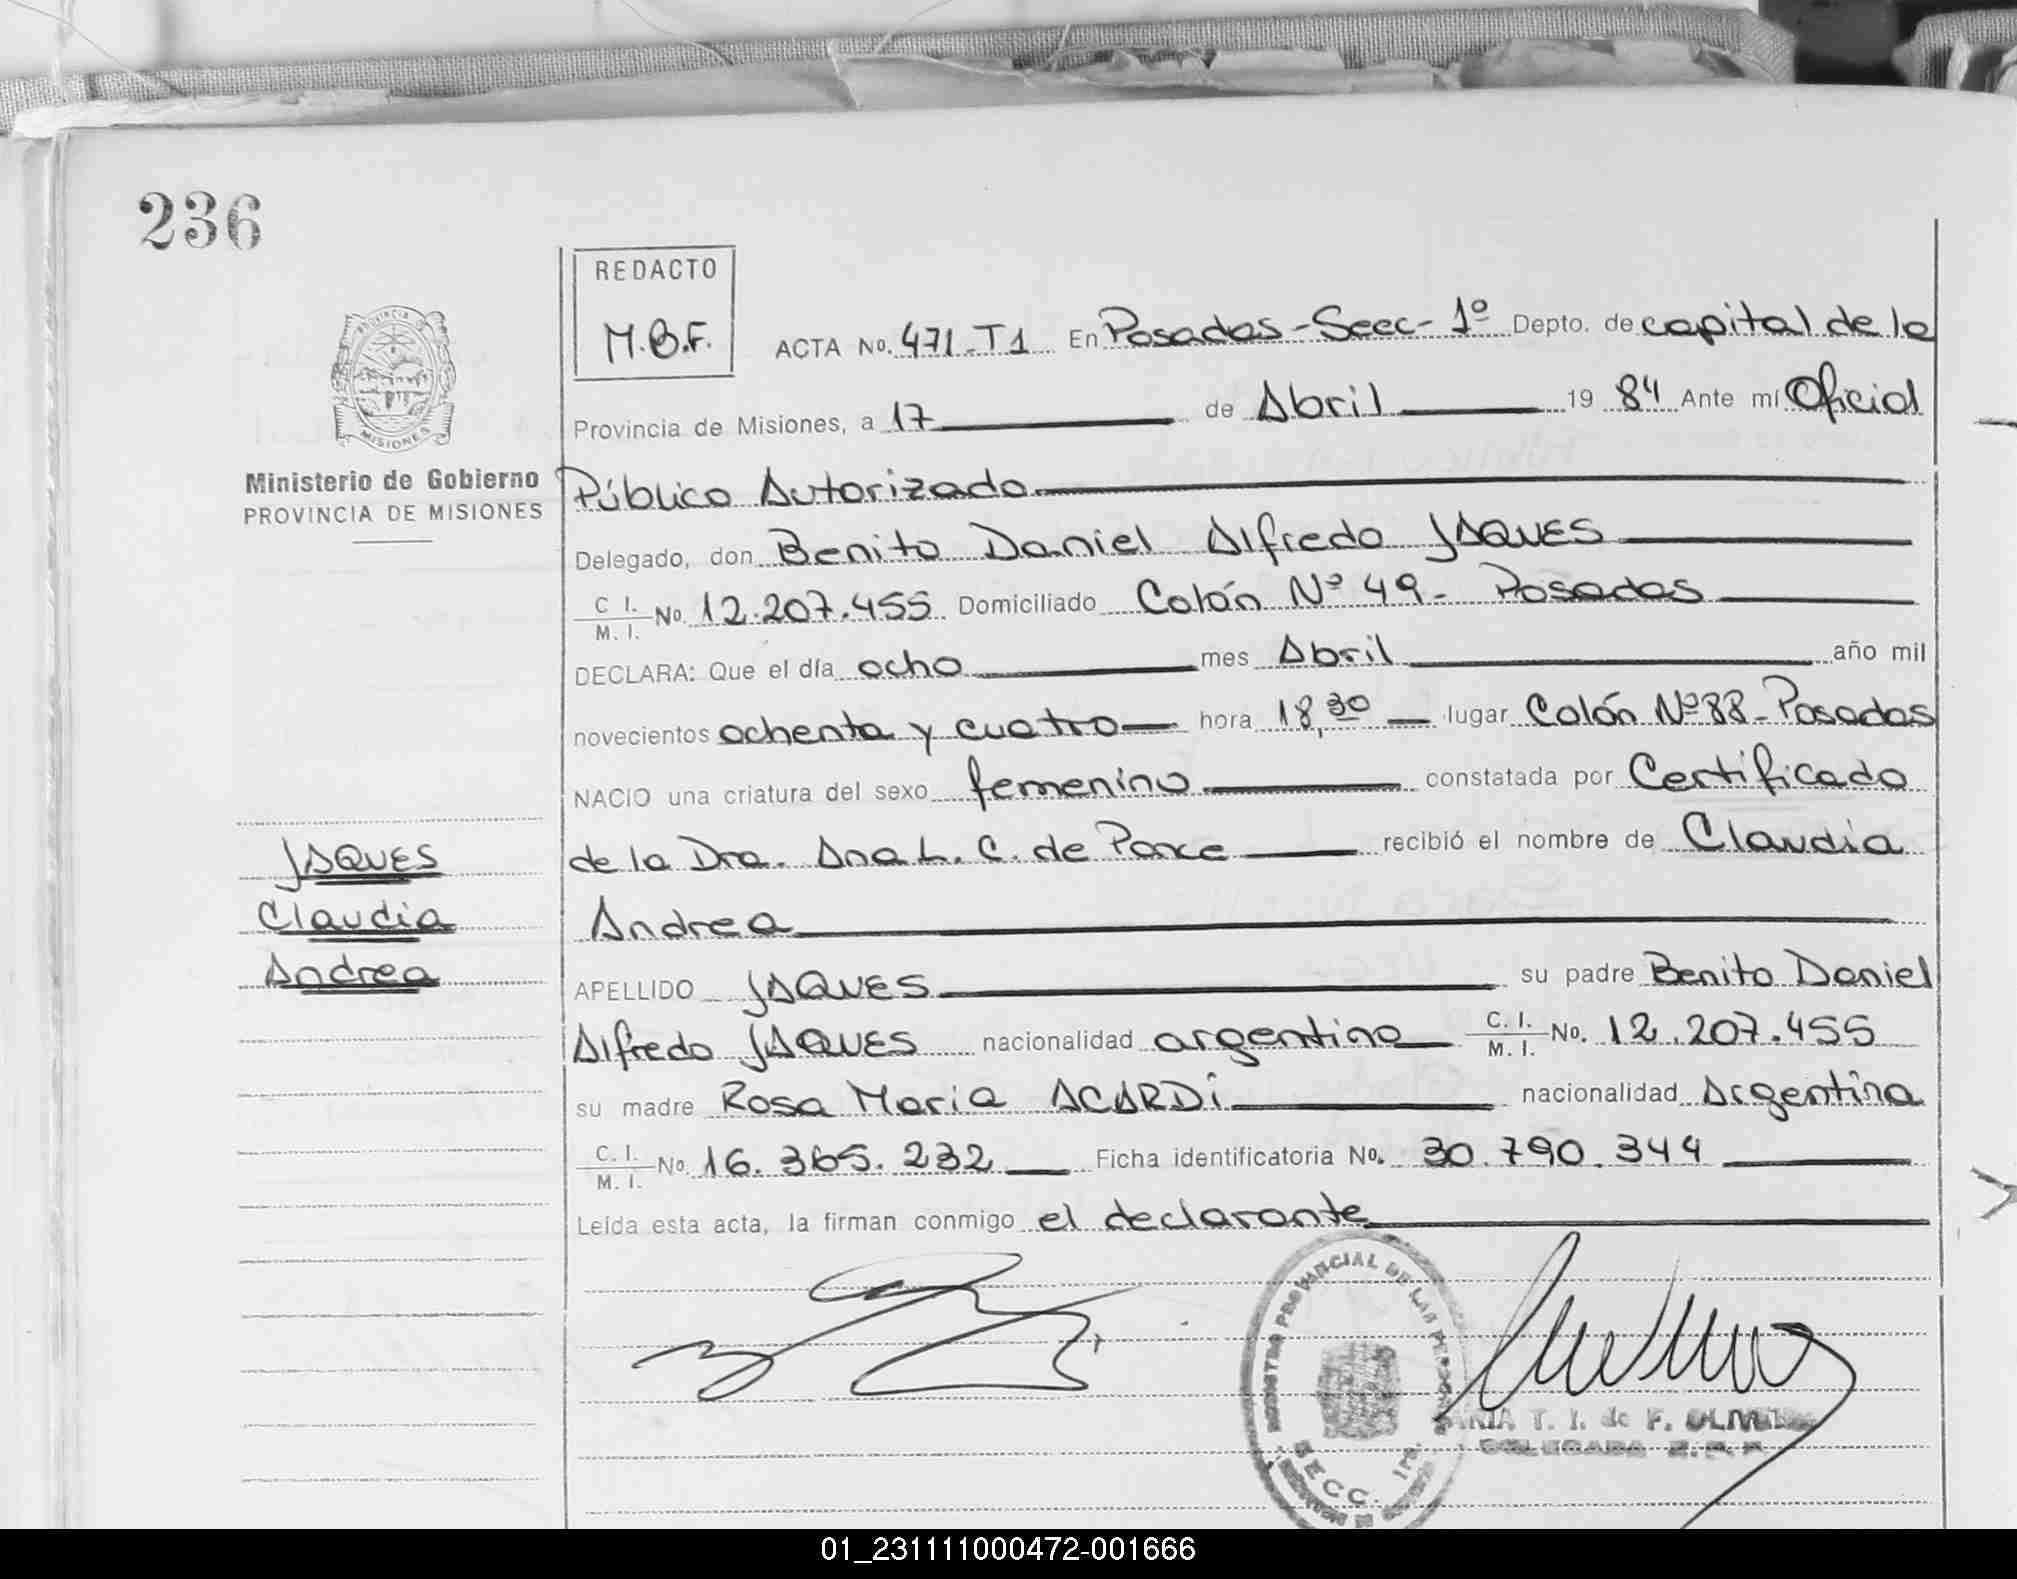 236
REDACTO
M.B.F.
ACTA No. 471-T1 En Posadas-Secc-1º Depto. de capital de la
Provincia de Misiones, a 17 de Abril 19 84 Ante mí Oficial
Ministerio de Gobierno
PROVINCIA DE MISIONES
Público Autorizado
Delegado, don Benito Daniel Alfredo JAQUES
C. I. / M. I. No. 12.207.455 Domiciliado Colón Nº 49- Posadas
DECLARA: Que el día ocho mes Abril año mil
novecientos ochenta y cuatro hora 18,30 lugar Colón Nº 88-Posadas
NACIO una criatura del sexo femenino constatada por Certificado
de la Dra. Ana L. C. de Ponce recibió el nombre de Claudia
Andrea
JAQUES
Claudia
Andrea
APELLIDO JAQUES su padre Benito Daniel
Alfredo JAQUES nacionalidad argentino C. I. / M. I. No. 12.207.455
su madre Rosa Maria ACARDi nacionalidad Argentina
C. I. / M. I. No. 16.365.232 Ficha identificatoria No. 30.790.344
Leída esta acta, la firman conmigo el declarante
REGISTRO PROVINCIAL DE LAS PERSONAS
SECC. 1ra.
MARIA T. I. de F. OLIVEIRA
DELEGADA R.P.P.
01_231111000472-001666